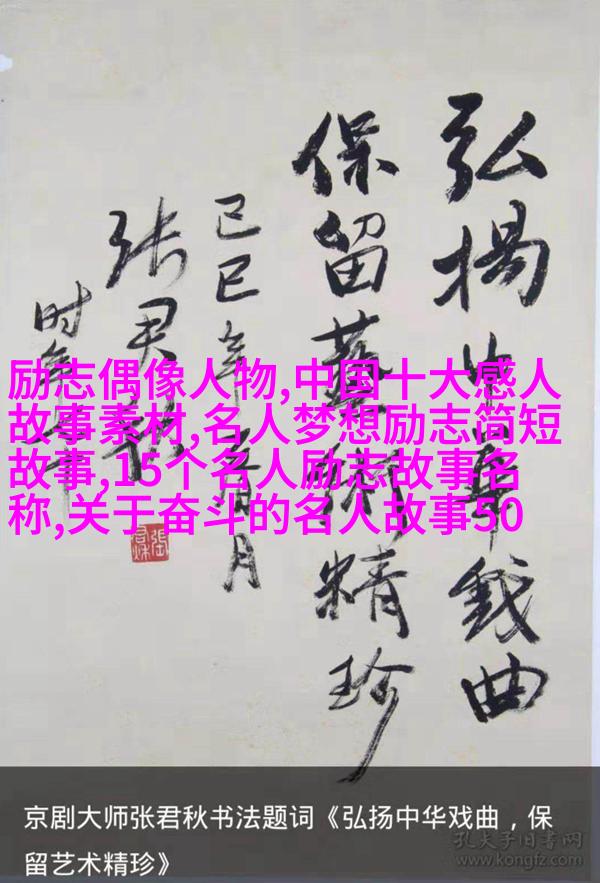 弘揚中華戏曲
保留藝術精珍
己巳年月
张君秋
时年
励志偶像人物,中国十大感人
故事素材,名人梦想励志简短
故事,15个名人励志故事名
称,关于奋斗的名人故事50
京剧大师张君秋书法题词《弘扬中华戏曲，保
留艺术精珍》
孔夫子旧书网
www.kongfz.com